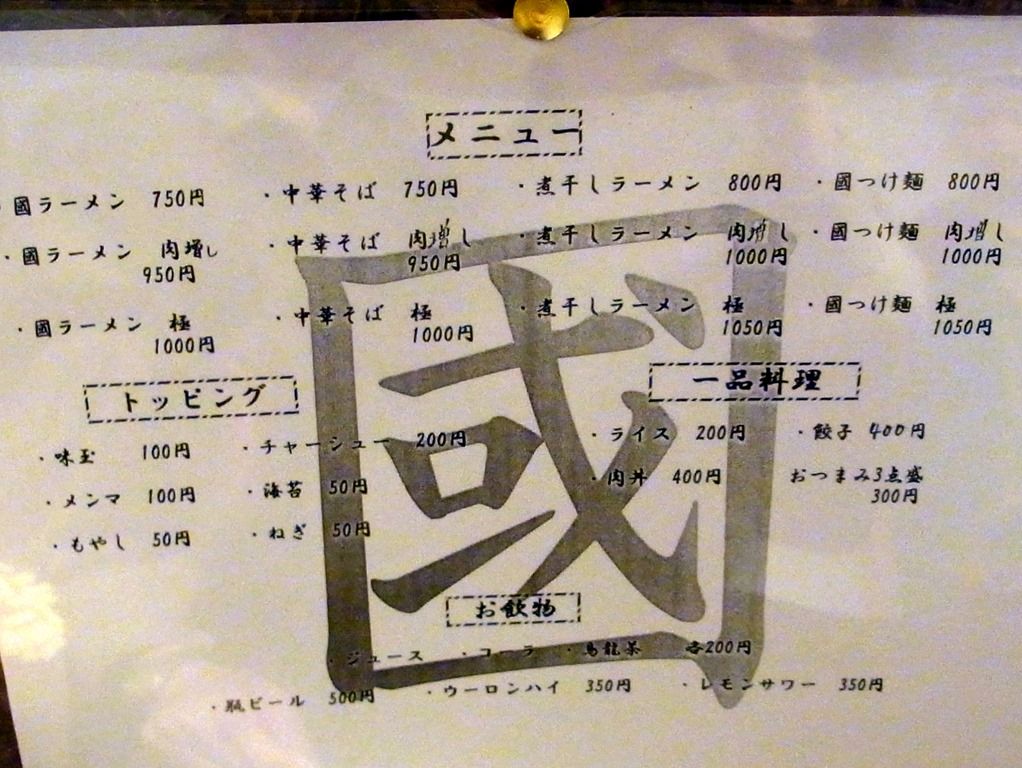 メニュー
・國ラーメン 750円 ・中華そば 750円 ・煮干しラーメン 800円 ・國つけ麺 800円
・國ラーメン 肉増し 950円 ・中華そば 肉増し 950円 ・煮干しラーメン 肉増し 1000円 ・國つけ麺 肉増し 1000円
・國ラーメン 極 1000円 ・中華そば 極 1000円 ・煮干しラーメン 極 1050円 ・國つけ麺 極 1050円
トッピング
・味玉 100円 ・チャーシュー 200円
・メンマ 100円 ・海苔 50円
・もやし 50円 ・ねぎ 50円
一品料理
・ライス 200円 ・餃子 400円
・肉丼 400円 おつまみ3点盛 300円
國
お飲物
・ジュース ・コーラ ・烏龍茶 各200円
・瓶ビール 500円 ・ウーロンハイ 350円 ・レモンサワー 350円